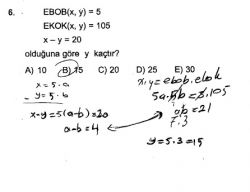 6. EBOB(x, y) = 5
EKOK(x, y) = 105
x – y = 20
olduğuna göre y kaçtır?
A) 10 B) 15 C) 20 D) 25 E) 30
x = 5.a
- y = 5.b
x-y = 5(a-b) = 20
a-b = 4
x.y = ebob.ekok
5a.5b = 5.105
ab = 21
7.3
y = 5.3 = 15